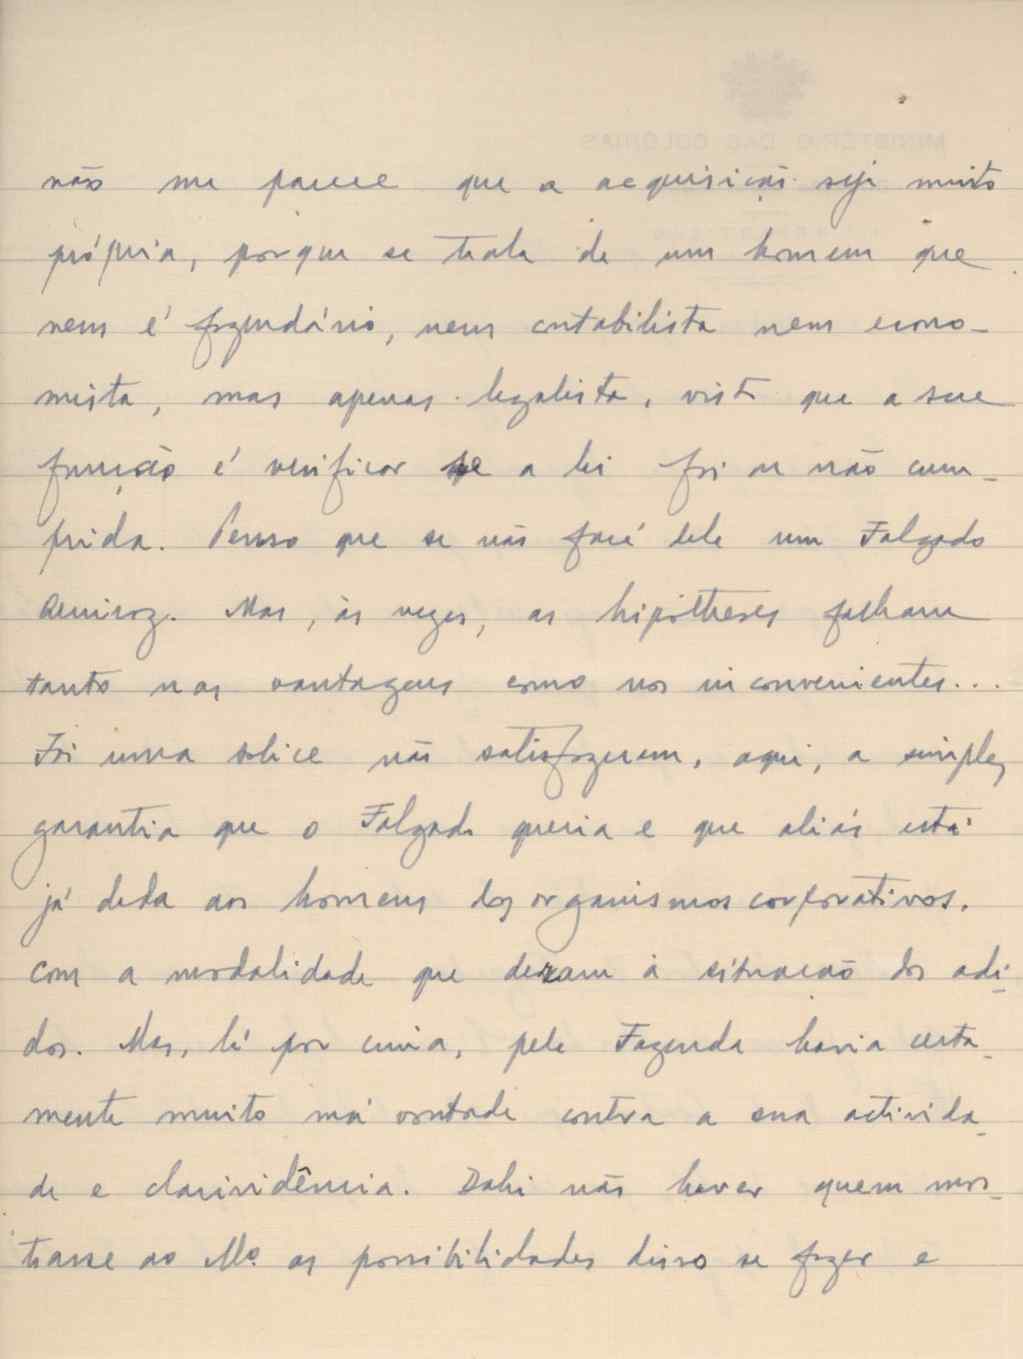 não me parece que a acquisição seja muito
própria, porque se trata de um homem que
nem é fazendário, nem contabilista nem econo-
mista, mas apenas legalista, visto que a sua
função é verificar se a lei foi ou não cum-
prida. Penso que se não fará dele um Falgado
Mas, às vezes, as hipótheses falham
tanto nas vantagens como nos inconvenientes...
Foi uma tolice não satisfazerem, aqui, a simples
garantia que o Falgado queria e que aliás está
já dada aos homens dos organismos corporativos,
com a modalidade que deram à situação dos adi-
dos. Mas, lá por cima, pela Fazenda havia certa-
mente muito má vontade contra a sua activida-
de e clarividência. Dahi não haver quem mos-
trasse ao Mo. as possibilidades disso se fazer e
MINISTÉRIO DAS COLÓNIAS